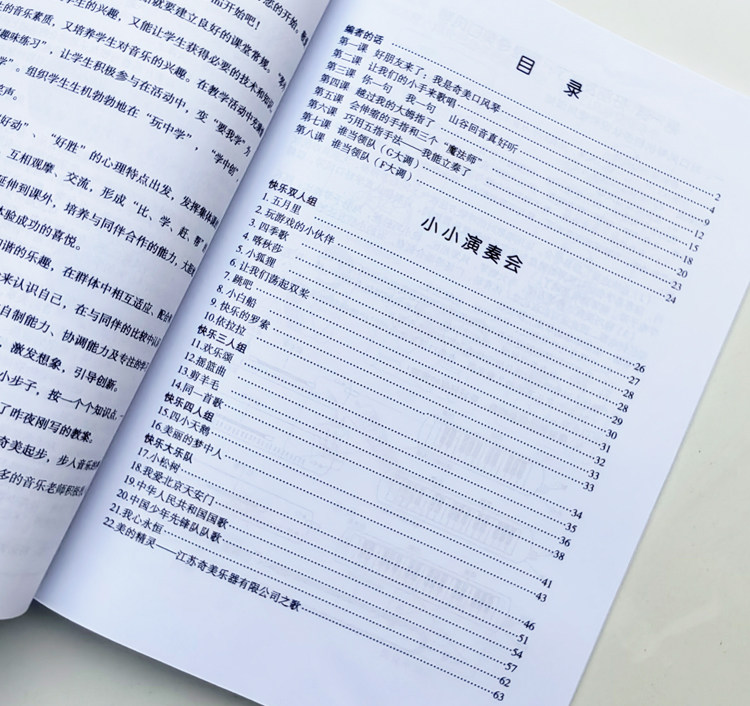 需开始吧！
思的开始，触
就要建立良好的课堂常规。
的兴趣，又能让学生获得必要的技术和知识
生的音乐素质，又培养学生对音乐的兴趣。在教学活动中
趣味练习”，让学生积极参与在活动中，变“要我学”为
学”。组织学生生机勃勃地在“玩中学”，“学中创”，
笑声。
好动”、“好胜”的心理特点出发，发挥集体
互相观摩、交流，形成“比、学、赶、帮”
延伸到课外，培养与同伴合作的能力，大胆
体验成功的喜悦。
和谐的乐趣，在群体中相互适应、配合
来认识自己，在与同伴的比较中
自制能力、协调能力及专注的学
激发想象，引导创新。
小步子，按一个个知识点
了昨夜刚写的教案。
奇美起步，步入音乐
多的音乐老师积极
目 录
编者的话 2
第一课 好朋友来了：我是奇美口风琴 4
第二课 让我们的小手来歌唱 9
第三课 你一句 我一句 山谷回音真好听 12
第四课 越过我的大姆指了 15
第五课 会伸缩的手指和三个“魔法师” 18
第六课 巧用五指手法——我能立奏了 20
第七课 谁当领队（G大调） 23
第八课 谁当领队（F大调） 24
小小演奏会
快乐双人组
1. 五月里 26
2. 玩游戏的小伙伴 27
3. 四季歌 28
4. 喀秋莎 28
5. 小狐狸 29
6. 让我们荡起双桨 30
7. 跳吧 31
8. 小白船 32
9. 快乐的罗索 33
10.依拉拉 33
快乐三人组
11.欢乐颂 34
12.摇篮曲 35
13.剪羊毛 36
14.同一首歌 38
快乐四人组
15.四小天鹅 41
16.美丽的梦中人 43
快乐大乐队
17.小松树 46
18.我爱北京天安门 51
19.中华人民共和国国歌 54
20.中国少年先锋队队歌 57
21.我心永恒 62
22.美的精灵——江苏奇美乐器有限公司之歌 63